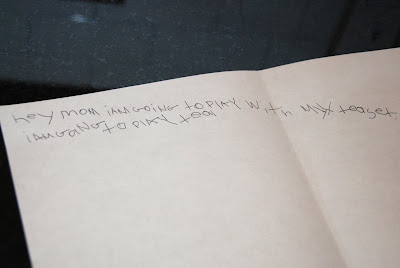 hey mom iAMGOiNG tO PlAY WitH MY teaset.
iAMGONG tO PlAY tea